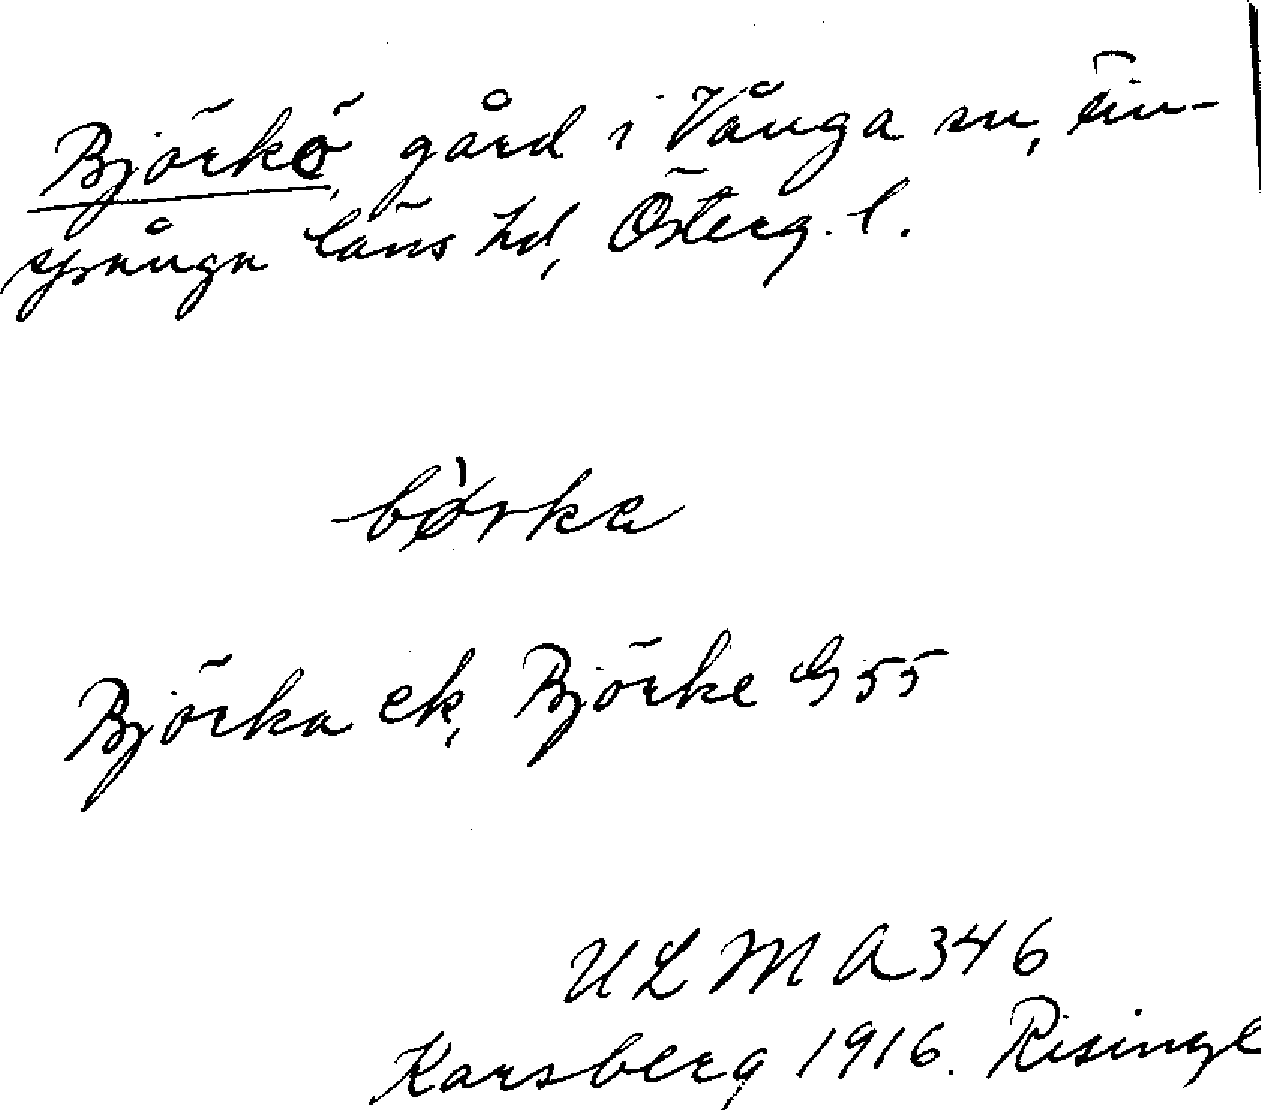 Björkö, gård i Vånga sn, Fin-
spånga läns hd, Österg. l.
bø̀rka
Björka ek, Björke G 55
ULMA 346
Karsberg 1916. Risinge